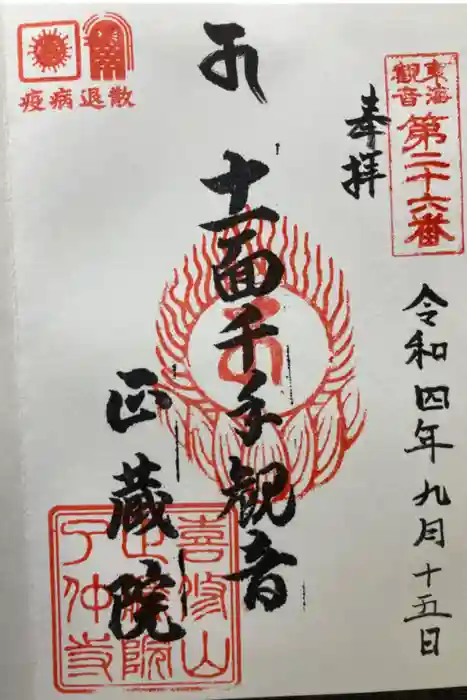 東海
観音
第二十六番
奉拝
令和四年九月十五日
十一面千手観音
正蔵院
疫病退散
喜修山
仲寺